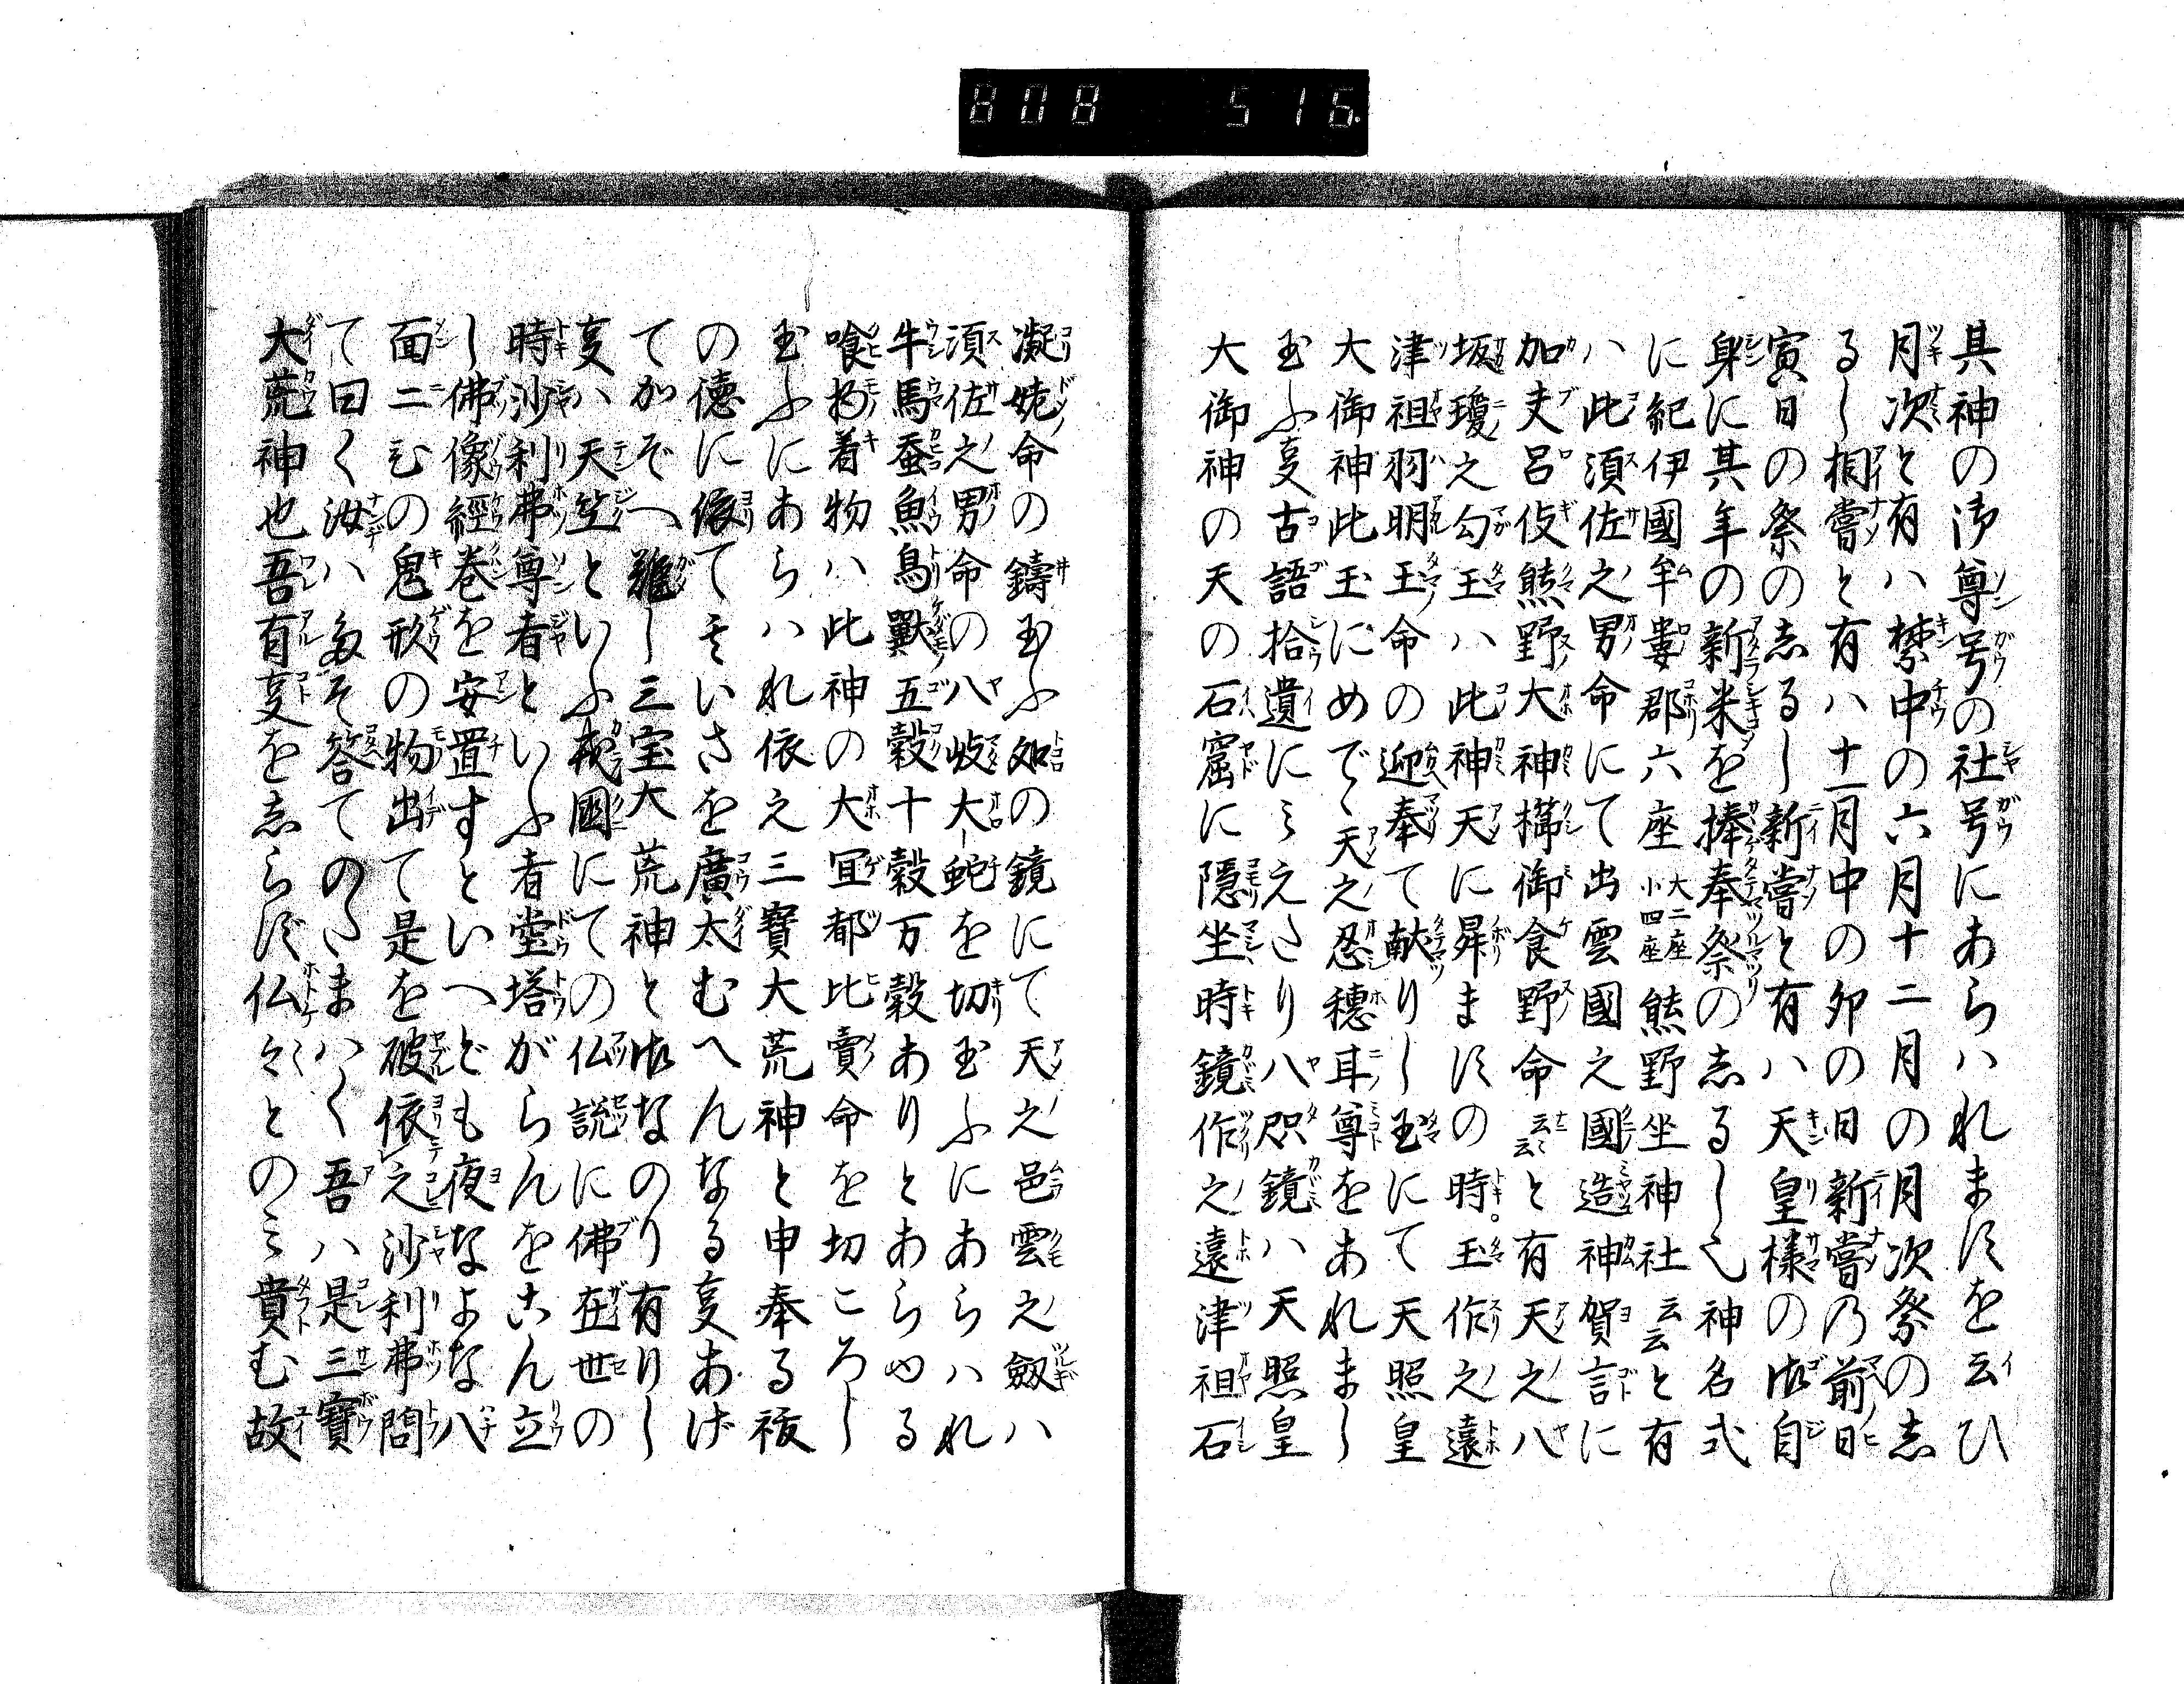 808 516.
其神の御尊号の社号にあらハれま須を云ひ
月次と有ハ禁中の六月十二月の月次祭の志
るし相嘗と有ハ十一月中の卯の日新嘗乃前日
寅日の祭の志るし新嘗と有ハ天皇様の御自
身に其年の新米を捧奉祭の志るし也神名式
に紀伊國牟婁郡六座大二座小四座熊野坐神社云云と有
ハ此須佐之男命にて出雲國之國造神賀言に
加夫呂伎熊野大神櫛御食野命云云と有天之八
坂瓊之勾玉ハ此神天に昇ま須の時。玉作之遠
津祖羽明玉命の迎奉て献りし玉にて天照皇
大御神此玉にめで〻天之忍穂耳尊をあれまし
玉ふ叓古語拾遺にミえたり八咫鏡ハ天照皇
大御神の天の石窟に隠坐時鏡作之遠津祖石
凝姥命の鑄玉ふ処の鏡にて天之邑雲之劔ハ
須佐之男命の八岐大蛇を切玉ふにあらハれ
牛馬蚕魚鳥獸五穀十穀万穀ありとあらゆる
喰物着物ハ此神の大宜都比賣命を切ころし
玉ふにあらハれ依之三寶大荒神と申奉る祓
の德に依ていさを廣太むへんなる叓あげ
てかぞへ難し三宝大荒神と御なのり有りし
叓ハ天竺といふ我國にての仏説に佛在世の
時沙利弗尊者といふ者堂塔がらんをこん立
し佛像經巻を安置すといへども夜なよな八
面二ひの鬼形の物出て是を破依之沙利弗問
て曰く汝ハ多そ答てのたまハく吾ハ是三寶
大荒神也吾有叓を志ら須仏々とのミ貴む故